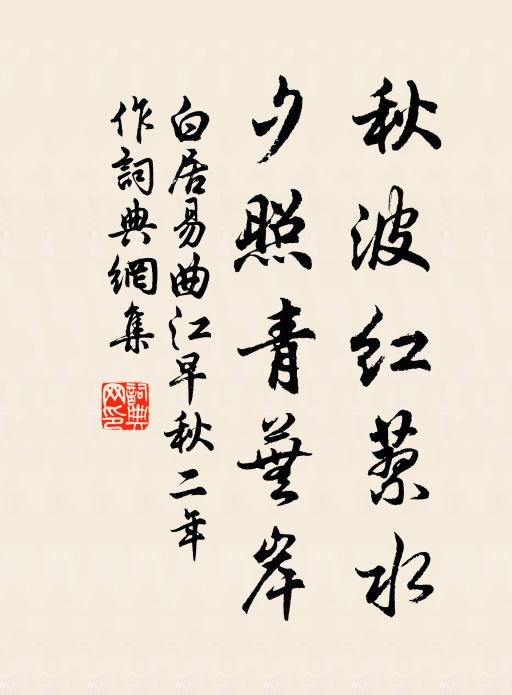 秋波紅蓼水
夕照青蕪岸
白居易曲江早秋二年
作詞典網集
詞典網印